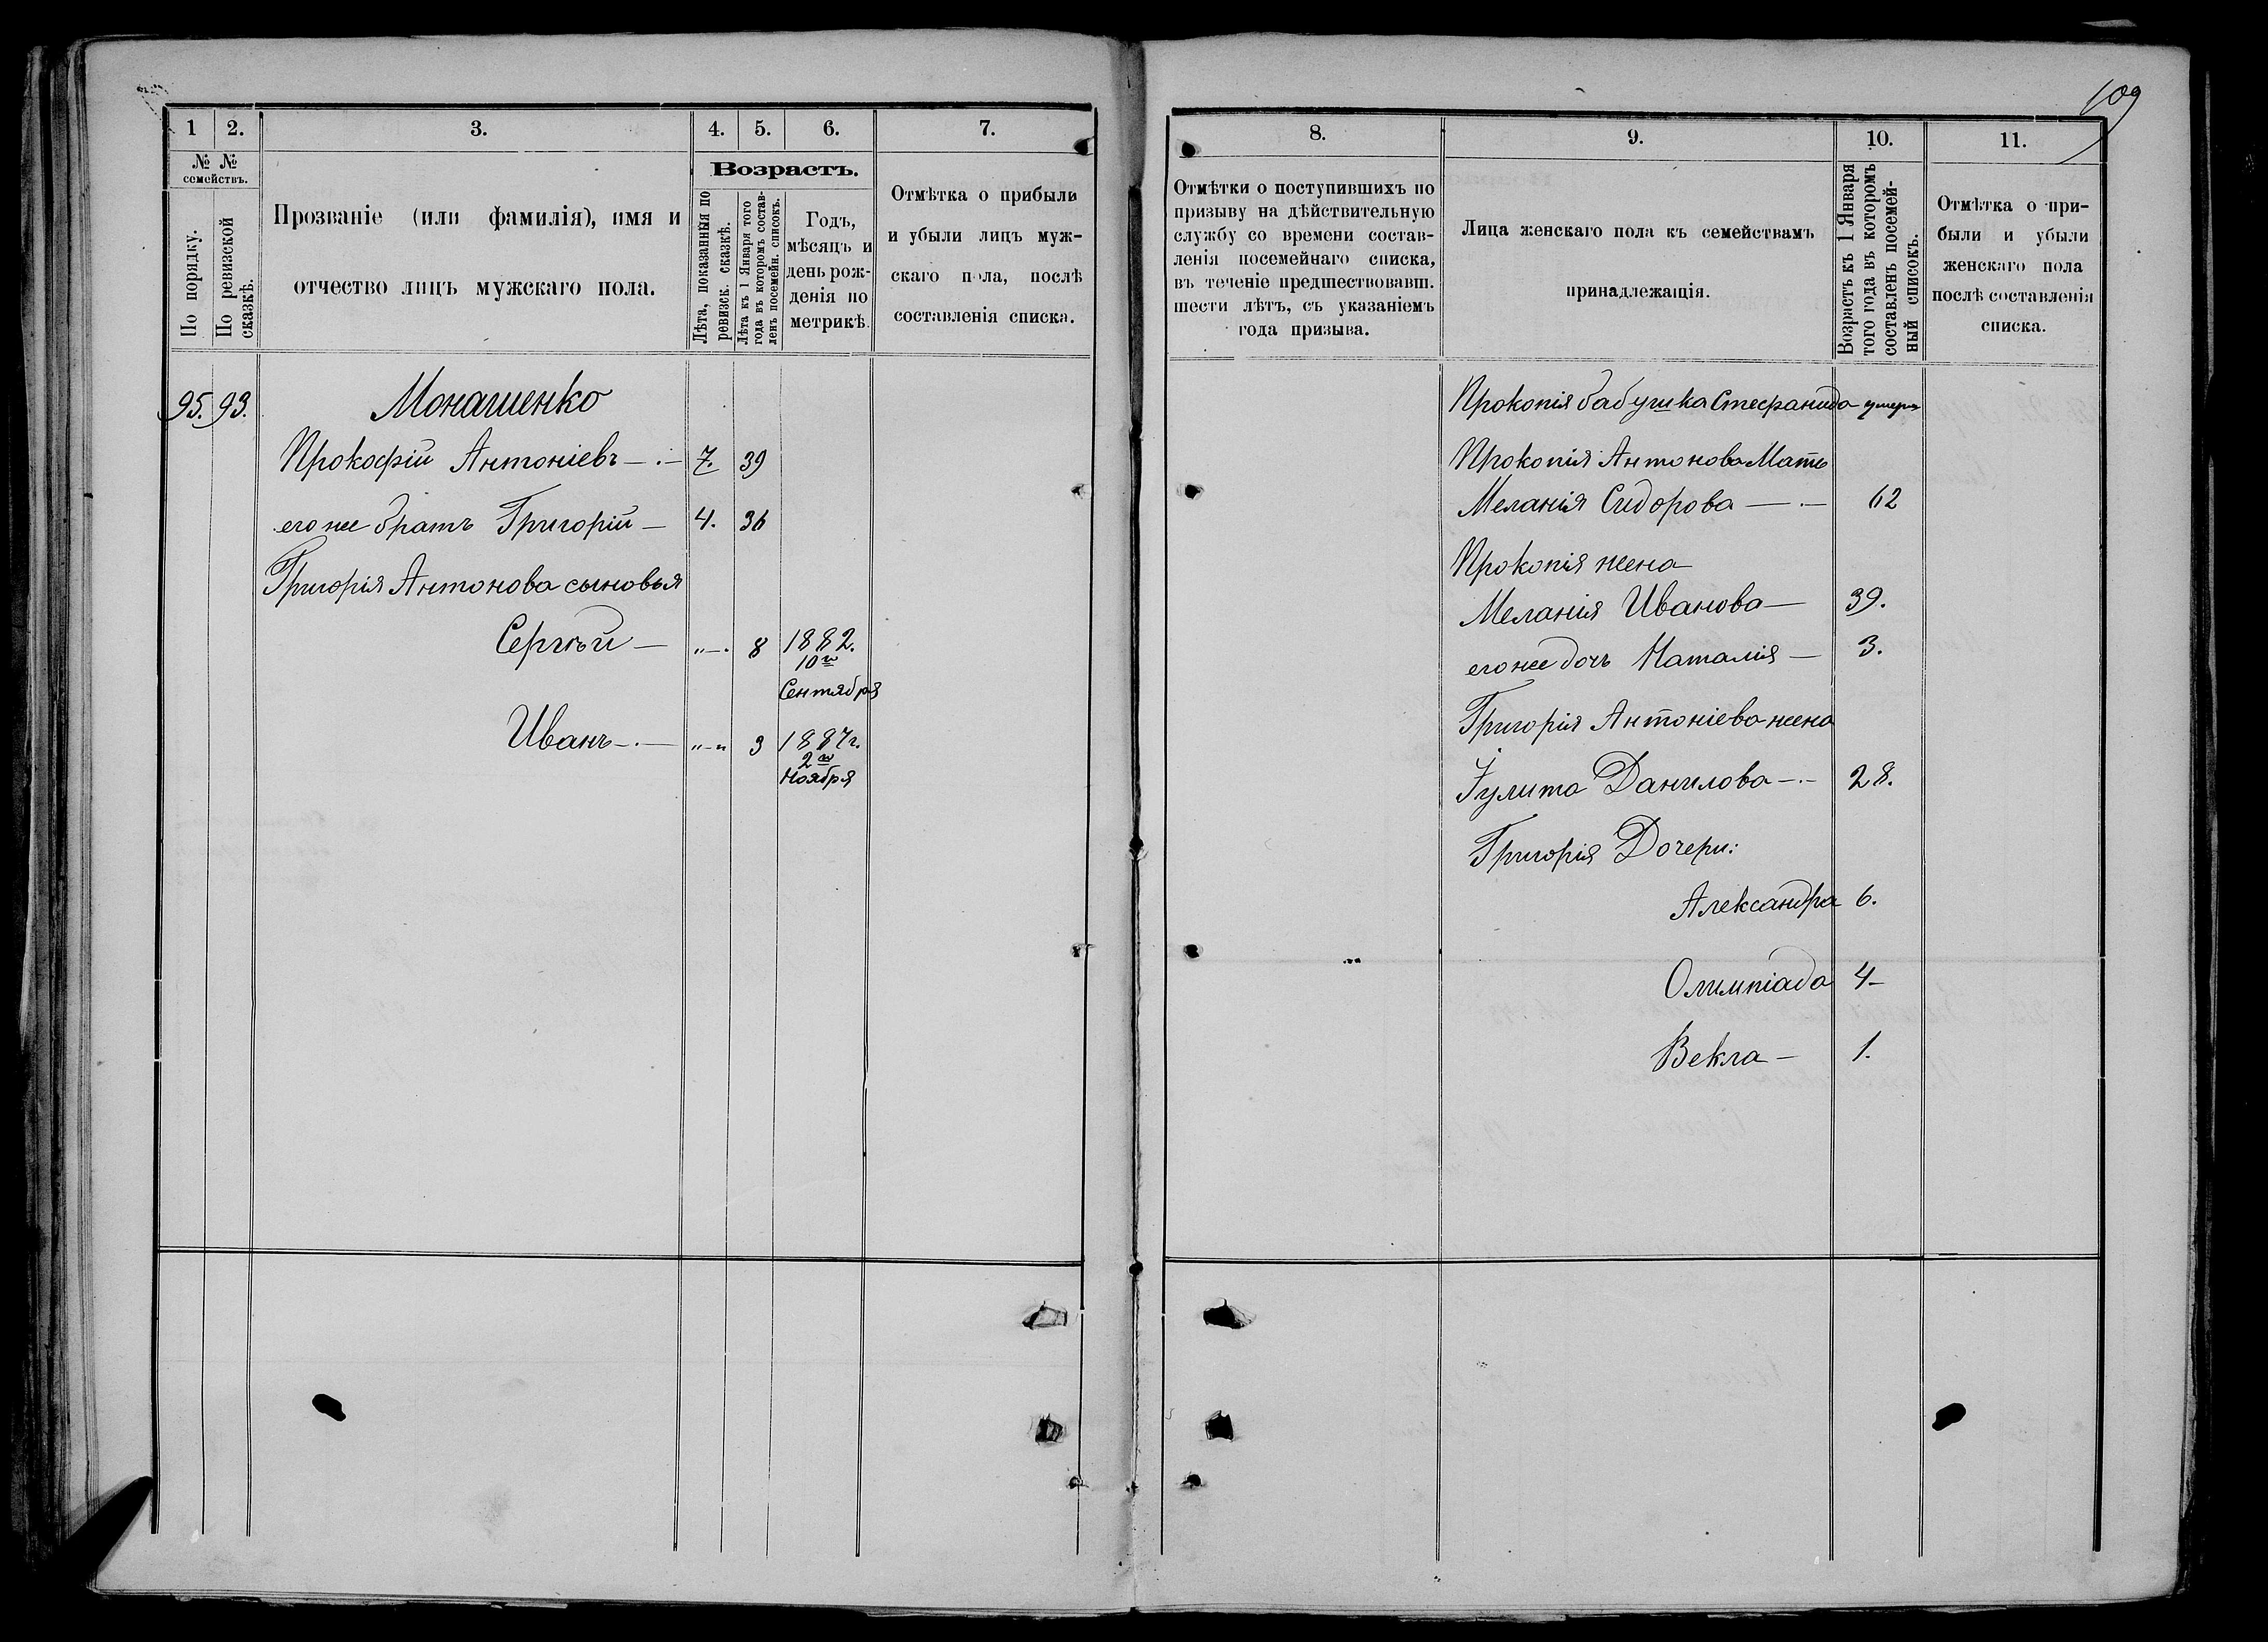 109
1
2.
3.
4.
5.
6.
7.
№ №
семействъ.
По порядку.
По ревизской
сказкѣ.
Прозваніе (или фамилія), имя и
отчество лицъ мужскаго пола.
Возрастъ.
Лѣта, показанныя по
ревизск. сказкѣ.
Лѣта къ 1 Января того
года въ которомъ состав-
ленъ посемейн. списокъ.
Годъ,
мѣсяцъ и
день рож-
денія по
метрикѣ.
Отмѣтка о прибыли
и убыли лицъ муж-
скаго пола, послѣ
составленія списка.
95. 93.
Монашенко
Прокофій Антоніевъ 7. 39
его же братъ Григорій 4. 36
Григорія Антонова сыновья
Сергѣй 8 1882.
10го
Сентября
Иванъ 3 1887г.
2го
Ноября
8.
9.
10.
11.
Отмѣтки о поступившихъ по
призыву на дѣйствительную
службу со времени состав-
ленія посемейнаго списка,
въ теченіе предшествовавш.
шести лѣтъ, съ указаніемъ
года призыва.
Лица женскаго пола къ семействамъ
принадлежащія.
Возрастъ къ 1 Января
того года въ которомъ
составленъ посемей-
ный списокъ.
Отмѣтка о при-
были и убыли
женскаго пола
послѣ составленія
списка.
Прокопія бабушка Стефанида умерла
Прокопія Антонова Мать
Меланія Сидорова 62
Прокопія жена
Меланія Иванова 39.
его же дочь Наталія 3.
Григорія Антоніева жена
Іулита Данилова 28.
Григорія Дочери:
Александра 6.
Олимпіада 4
Векла 1.